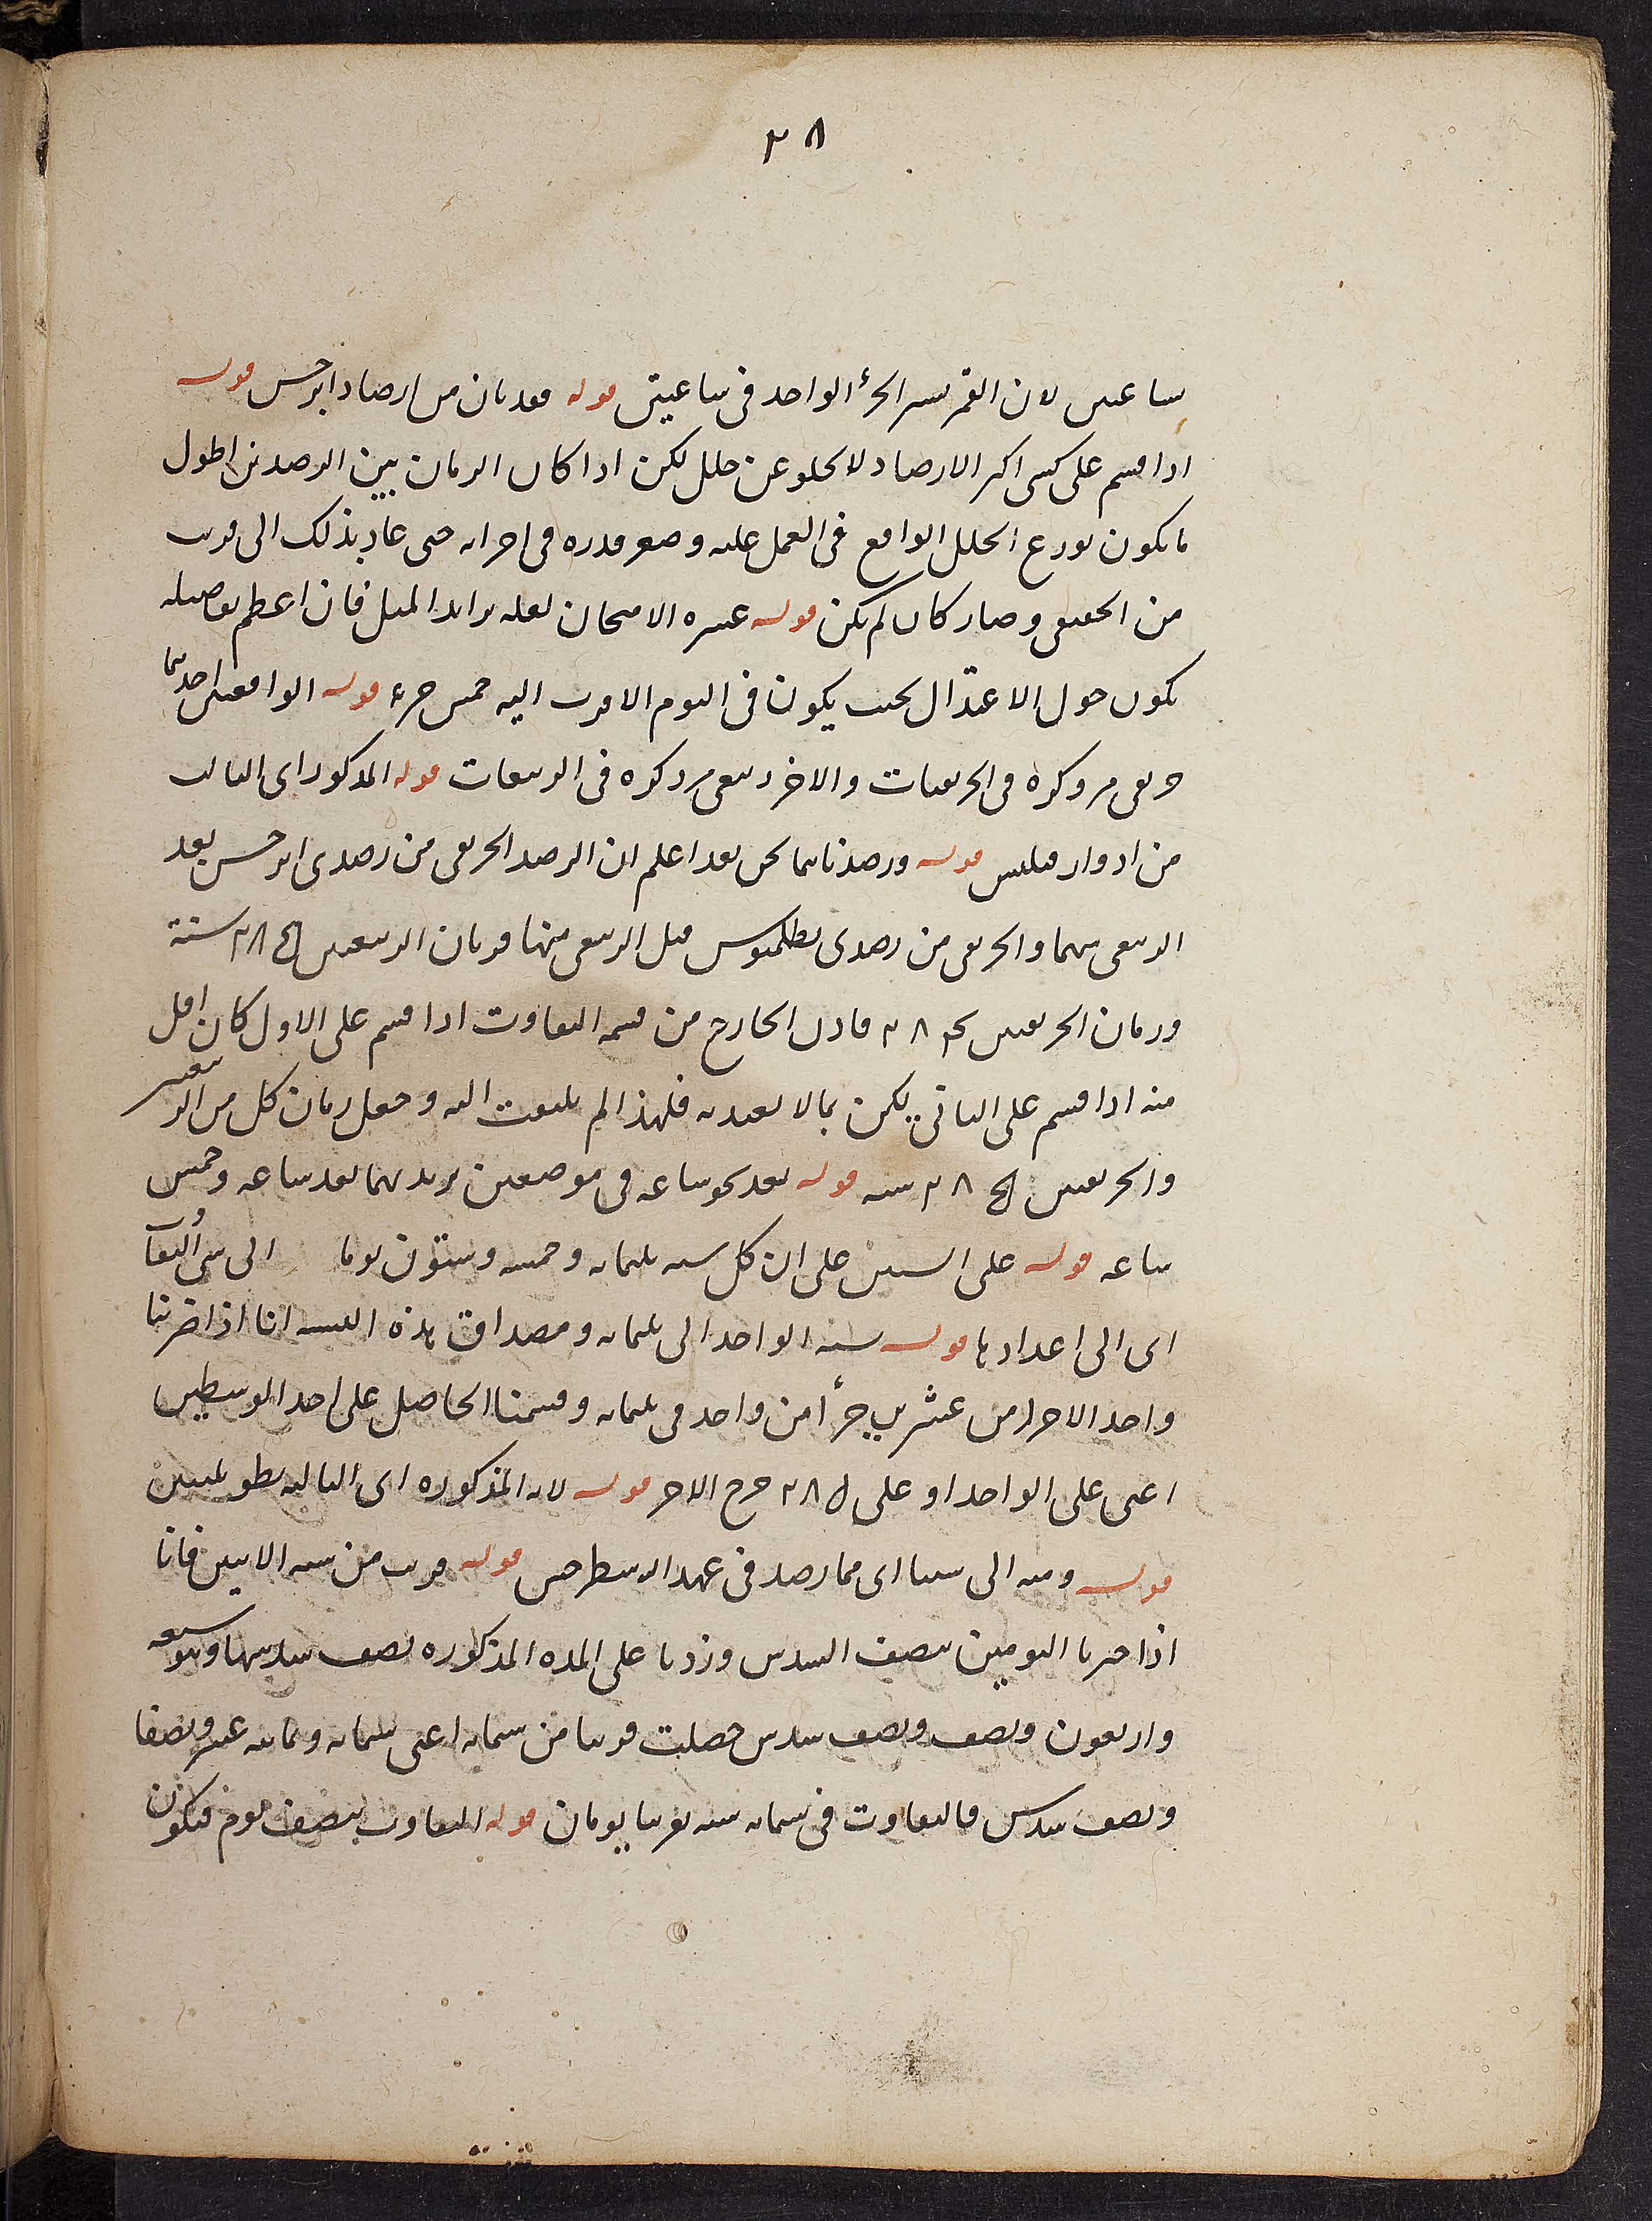 ٢٨
ساعتين لان القمر يسير الجزٔ الواحد فى ساعيتن قوله فقد بان من ارصاد ابرخس قوله
اذا قسم على كسى اكثر الارصاد لا تخلو عن خلل لكن اذا كان الزمان بين الرصدين اطول
ما يكون توزع الخلل الواقع فى العمل عليه وصغر قدره فى اجزائه حتى عاد بذلك الى قريب
من الحقيقى وصار كان لم يكن قوله عسره الامتحان لعله تزايد الميل فان اعظم تفاضيله
يكون حول الاعتدال بحيث يكون فى اليوم الاقرب اليه خمس جزء قوله الواقعين احدهما
خريفى مر ذكره فى الخريفيات والاخر ربيعى مر ذكره فى الربيعات قوله المذكور اى الثالث
من ادوار قللبس قوله ورصدناهما نحن بعد اعلم ان الرصد الخريفى من رصدى ابرخس بعد
الربيعى منهما والخريفى من رصدى بطلميوس قبل الربيعى منهما فزمان الربيعين ٢٨ سنة
وزمان الخريفين ٢٨ فاذن الخارج من قسمة التفاوت اذا قسم على الاول كان اقل
منه اذا قسم على الثانى لكن بما لا يعتد به فلهذا لم يلتفت اليه وجعل زمان كل من الربيعين
والخريفين ٢٨ سنه قوله بعد نحو ساعه فى موضعين يريد بهما بعد ساعه وخمس
ساعه قوله على السنين على ان كل سنه ثلثمائه وخمسه وستون يوما الى سى التفاوت
اى الى اعدادها قوله سنه الواحد الى ثلثمائه ومصداق هذه النسبه انا اذا ضربنا
واحد الاجزا من عشرين جزأ من واحد فى ثلثمائه وقسمنا الحاصل على احد الوسطين
اعنى على الواحد او على ٢٨ خرج الاخر قوله لانه المذكوره اى الثالثه بطوبلسين
قوله ومنه الى سننا اى مما رصد فى عهد ارسطرخس قوله قريب من سنه الاثنين فانا
اذا جبرنا اليومين بنصف السدس وزدنا على المده المذكوره نصف سدسها وهو سبعه
واربعون ونصف ونصف سدس حصلت قريبا من ستمائه اعنى ستمائه وثمانيه عشر ونصفا
ونصف سدس فالتفاوت فى ستمائه سنه قريبا يومان قوله التفاوت بنصف يوم فيكون